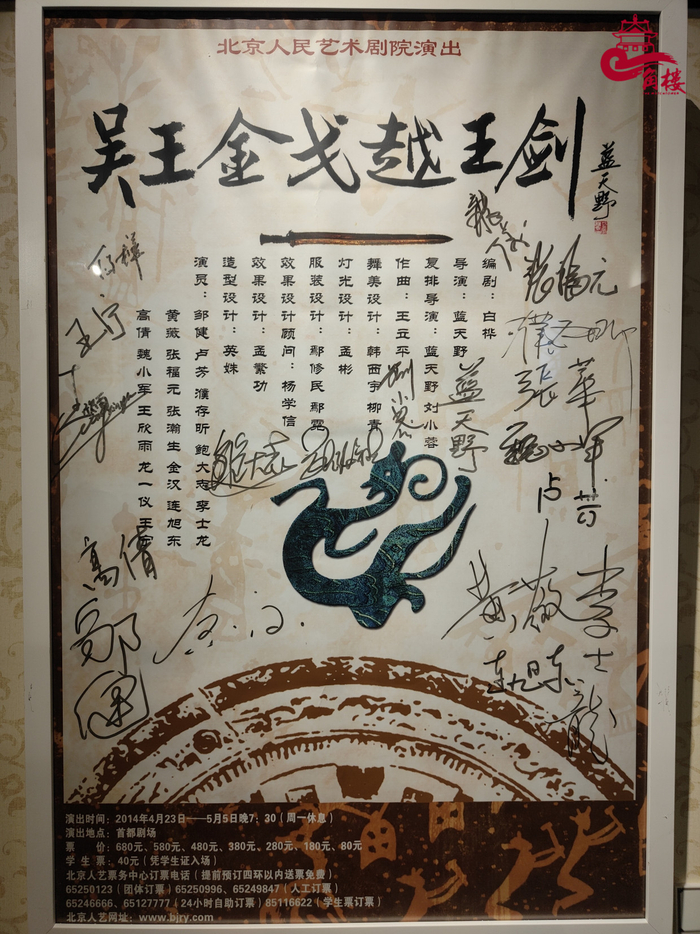 北京人民艺术剧院演出
吴王金戈越王剑
蓝天野
编剧：白桦
导演：蓝天野
复排导演：蓝天野 刘小蓉
作曲：王立平
舞美设计：韩西宇 柳青
灯光设计：孟彬
服装设计：鄢修民 鄢霓
效果设计顾问：杨学信
效果设计：孟繁功
造型设计：英姝
演员：邹健 卢芳 濮存昕 鲍大志 李士龙
黄薇 张福元 张瀚生 金汉 连旭东
高倩 魏小军 王欣雨 龙一仪 王宁
王宁
张福元
濮存昕
张华
蓝天野
刘小蓉
鲍大志
魏小军
卢芳
高倩
邹健
黄薇
李士龙
连旭东
演出时间：2014年4月23日——5月5日晚7：30（周一休息）
演出地点：首都剧场
票 价：680元、580元、480元、380元、280元、180元、80元
学 生 票：40元（凭学生证入场）
北京人艺票务中心订票电话（提前预订四环以内送票免费）
65250123（团体订票）65250996、65249847（人工订票）
65246666、65127777（24小时自助订票）85116622（学生票订票）
北京人艺网址：www.bjry.com
角楼